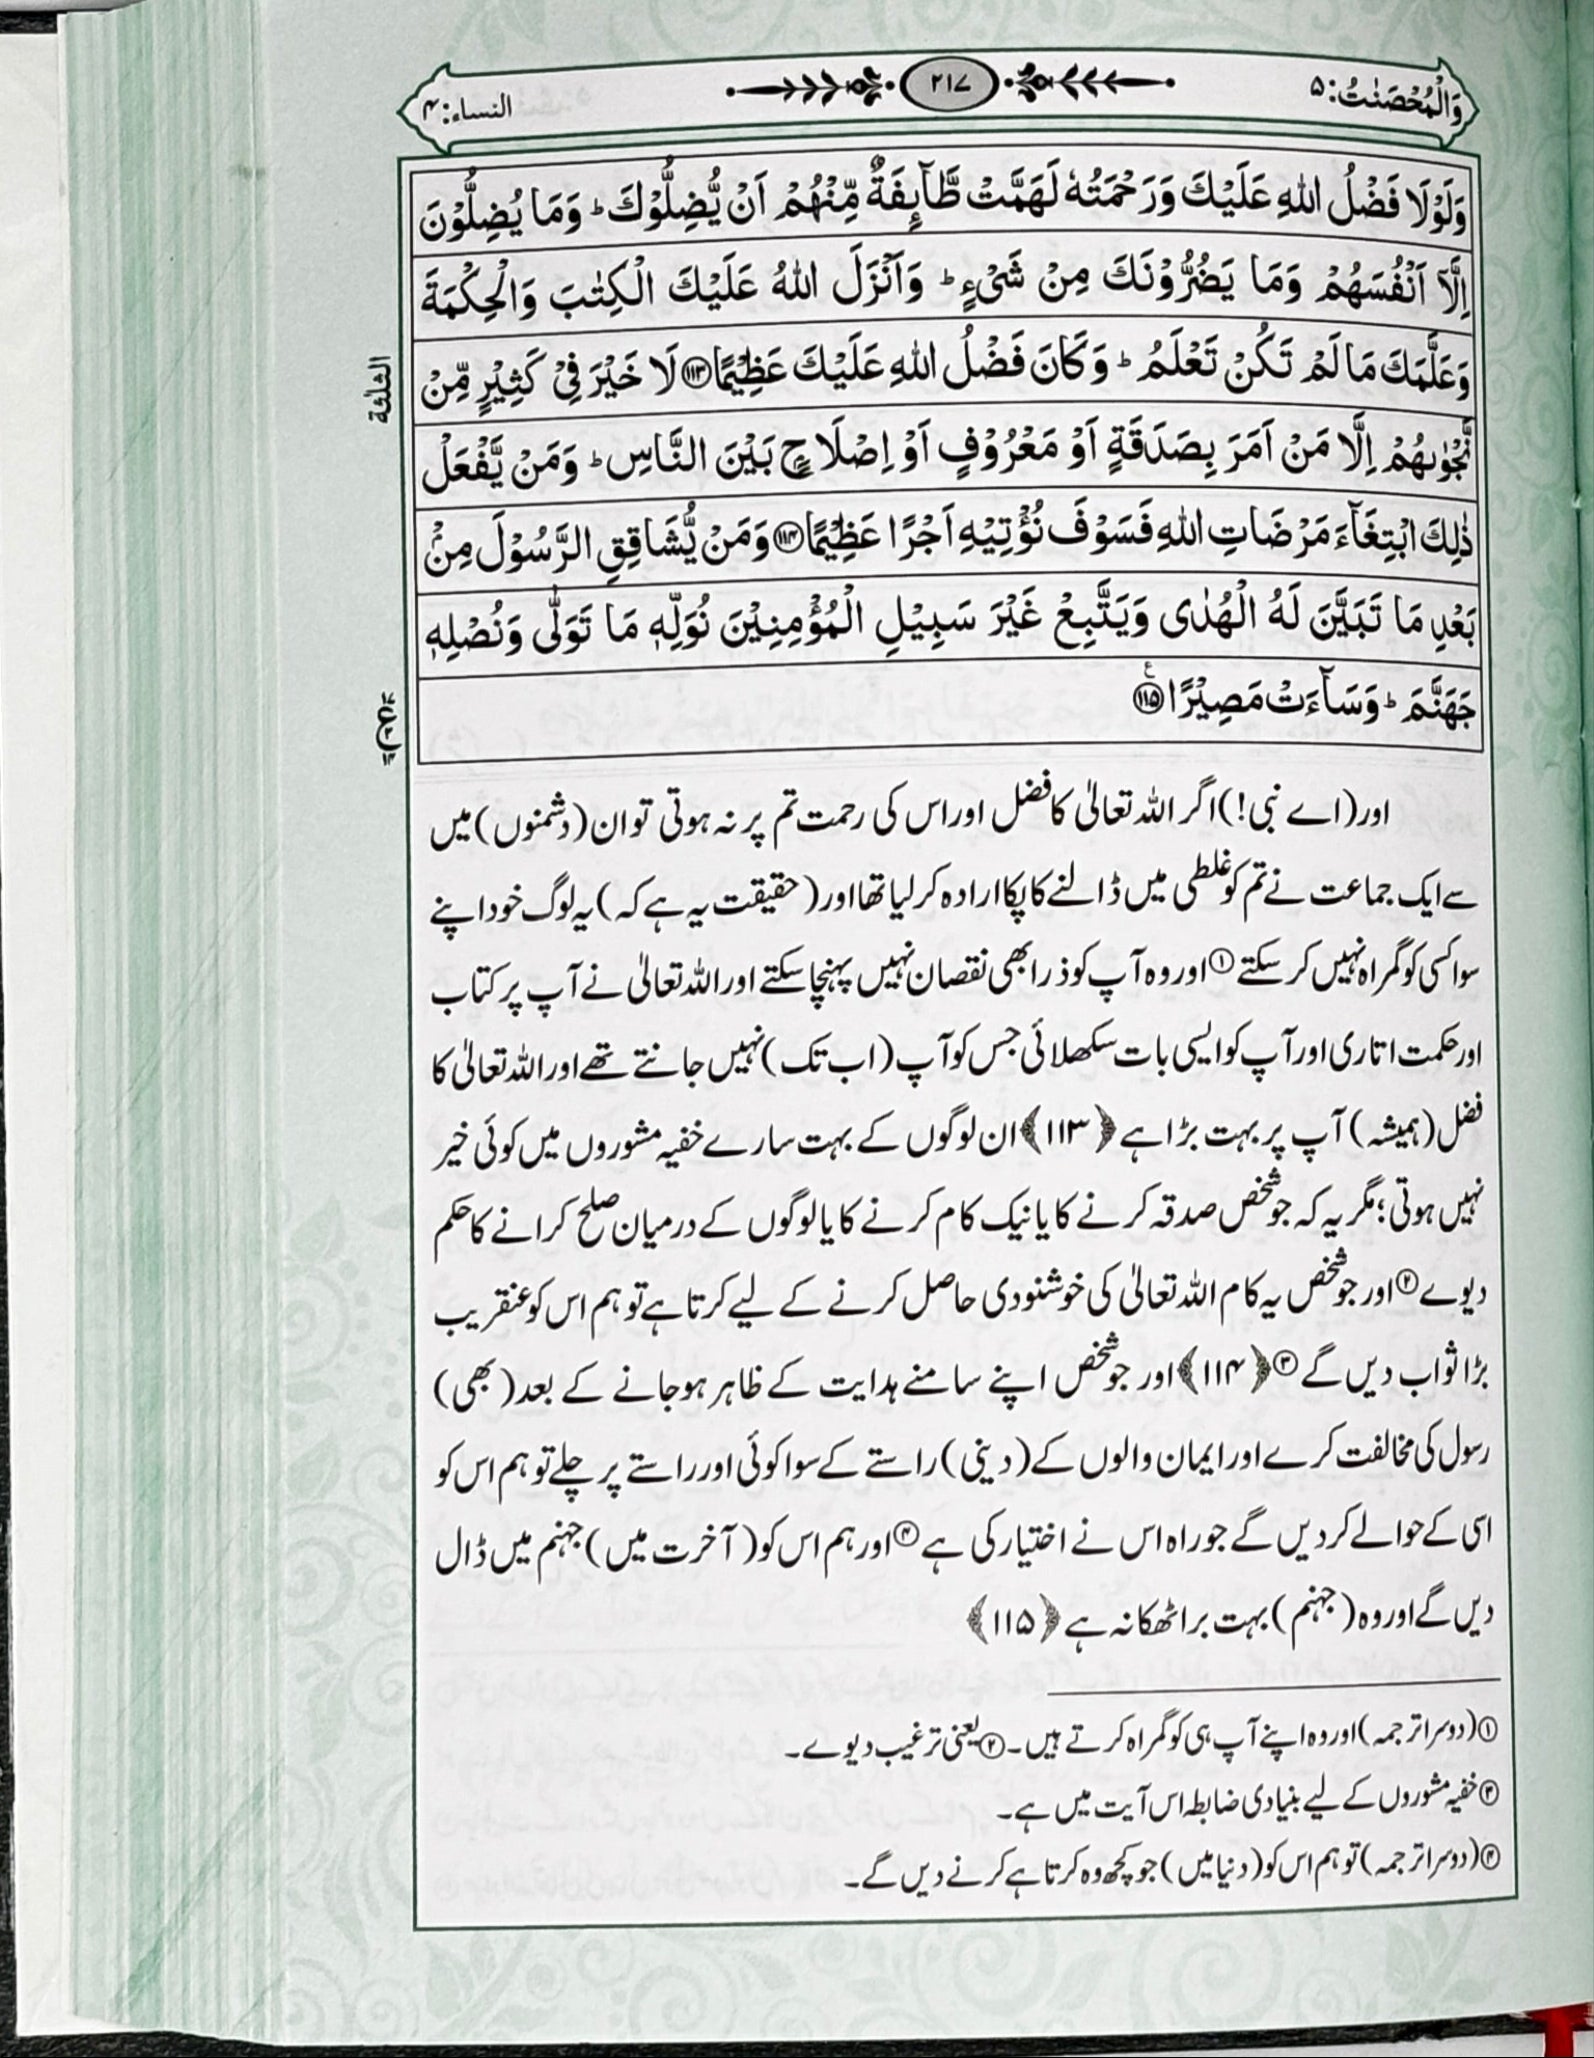 وَالْمُحْصَنٰتُ:۵
۲۱۷
النساء:۴
وَلَوْلَا فَضْلُ اللّٰهِ عَلَيْكَ وَرَحْمَتُهٗ لَهَمَّتْ طَّآئِفَةٌ مِّنْهُمْ اَنْ يُّضِلُّوْكَ ؕ وَمَا يُضِلُّوْنَ
اِلَّاۤ اَنْفُسَهُمْ وَمَا يَضُرُّوْنَكَ مِنْ شَیْءٍ ؕ وَاَنْزَلَ اللّٰهُ عَلَيْكَ الْكِتٰبَ وَالْحِكْمَةَ
وَعَلَّمَكَ مَا لَمْ تَكُنْ تَعْلَمُ ؕ وَكَانَ فَضْلُ اللّٰهِ عَلَيْكَ عَظِيْمًا ﴿۱۱۳﴾ لَا خَيْرَ فِیْ كَثِيْرٍ مِّنْ
نَّجْوٰىهُمْ اِلَّا مَنْ اَمَرَ بِصَدَقَةٍ اَوْ مَعْرُوْفٍ اَوْ اِصْلَاحٍۭ بَيْنَ النَّاسِ ؕ وَمَنْ يَّفْعَلْ
ذٰلِكَ ابْتِغَآءَ مَرْضَاتِ اللّٰهِ فَسَوْفَ نُؤْتِيْهِ اَجْرًا عَظِيْمًا ﴿۱۱۴﴾ وَمَنْ يُّشَاقِقِ الرَّسُوْلَ مِنْۢ
بَعْدِ مَا تَبَيَّنَ لَهُ الْهُدٰی وَيَتَّبِعْ غَيْرَ سَبِيْلِ الْمُؤْمِنِيْنَ نُوَلِّهٖ مَا تَوَلّٰی وَنُصْلِهٖ
جَهَنَّمَ ؕ وَسَآءَتْ مَصِيْرًا ﴿۱۱۵﴾
الثلٰثة
اور(اے نبی!)اگر اللہ تعالیٰ کا فضل اور اس کی رحمت تم پر نہ ہوتی تو ان (دشمنوں) میں
سے ایک جماعت نے تم کو غلطی میں ڈالنے کا پکا ارادہ کر لیا تھا اور (حقیقت یہ ہے کہ) یہ لوگ خود اپنے
سوا کسی کو گمراہ نہیں کر سکتے ① اور وہ آپ کو ذرا بھی نقصان نہیں پہنچا سکتے اور اللہ تعالیٰ نے آپ پر کتاب
اور حکمت اتاری اور آپ کو ایسی بات سکھلائی جس کو آپ (اب تک) نہیں جانتے تھے اور اللہ تعالیٰ کا
فضل (ہمیشہ) آپ پر بہت بڑا ہے ﴿۱۱۳﴾ ان لوگوں کے بہت سارے خفیہ مشوروں میں کوئی خیر
نہیں ہوتی؛ مگر یہ کہ جو شخص صدقہ کرنے کا یا نیک کام کرنے کا یا لوگوں کے درمیان صلح کرانے کا حکم
دیوے ② اور جو شخص یہ کام اللہ تعالیٰ کی خوشنودی حاصل کرنے کے لیے کرتا ہے تو ہم اس کو عنقریب
بڑا ثواب دیں گے ③ ﴿۱۱۴﴾ اور جو شخص اپنے سامنے ہدایت کے ظاہر ہو جانے کے بعد (بھی)
رسول کی مخالفت کرے اور ایمان والوں کے (دینی) راستے کے سوا کوئی اور راستے پر چلے تو ہم اس کو
اسی کے حوالے کر دیں گے جو راہ اس نے اختیار کی ہے ④ اور ہم اس کو (آخرت میں) جہنم میں ڈال
دیں گے اور وہ (جہنم) بہت برا ٹھکانہ ہے ﴿۱۱۵﴾
① (دوسرا ترجمہ) اور وہ اپنے آپ ہی کو گمراہ کرتے ہیں۔ ② یعنی ترغیب دیوے۔
③ خفیہ مشوروں کے لیے بنیادی ضابطہ اس آیت میں ہے۔
④ (دوسرا ترجمہ) تو ہم اس کو (دنیا میں) جو کچھ وہ کرتا ہے کرنے دیں گے۔